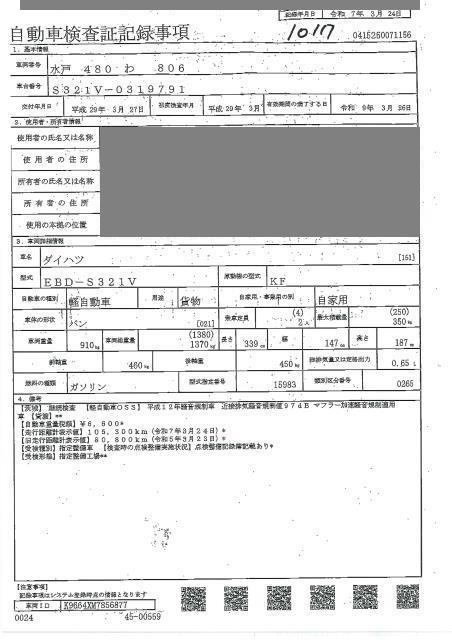 記録年月日 令和 7年 3月 24日
自動車検査証記録事項
1017 0415260071156
1. 基本情報
車両番号 水戸 480 わ 806
車台番号 S321V-0319791
交付年月日 平成 29年 3月 27日 初度検査年月 平成 29年 3月 有効期間の満了する日 令和 9年 3月 26日
2. 使用者・所有者情報
使用者の氏名又は名称
使用者の住所
所有者の氏名又は名称
所有者の住所
使用の本拠の位置
3. 車両詳細情報
車名 ダイハツ [151]
型式 EBD-S321V 原動機の型式 KF
自動車の種別 軽自動車 用途 貨物 自家用・事業用の別 自家用
車体の形状 バン [021] 乗車定員 (4) 2人 最大積載量 (250) 350kg
車両重量 910kg 車両総重量 (1380) 1370kg 長さ 339cm 幅 147cm 高さ 187cm
前軸重 460kg 後軸重 450kg 総排気量又は定格出力 0.65L
燃料の種類 ガソリン 型式指定番号 15983 類別区分番号 0265
4. 備考
【茨検】 継続検査 【軽自動車OSS】 平成12年騒音規制車 近接排気騒音規制値97dB マフラー加速騒音規制適用
車 【貨物】**
【自動車重量税額】¥6,600*
【走行距離計表示値】105,300km(令和7年3月24日)*
【旧走行距離計表示値】80,800km(令和5年3月23日)*
【受検種別】指定整備車 【検査時の点検整備実施状況】点検整備記録簿記載あり*
【受検形態】指定整備工場**
【注意事項】
記録事項はシステム登録時点の情報となります
車両ID K9664XM7856877
0024 45-00559